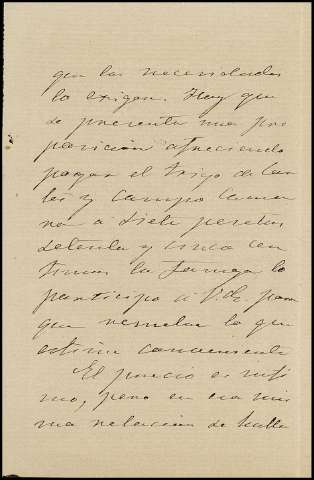 que las necesidades
lo exigen. Hoy que
se presenta una pro
posición ofreciendo
pagar el trigo de
les y campo Cama
ra a siete pesetas
setenta y cinco cen
timos la fanega lo
participo a Vd. para
que resuelva lo que
estime conveniente
El precio es infi
mo, pero en esa mis
ma relación se halla